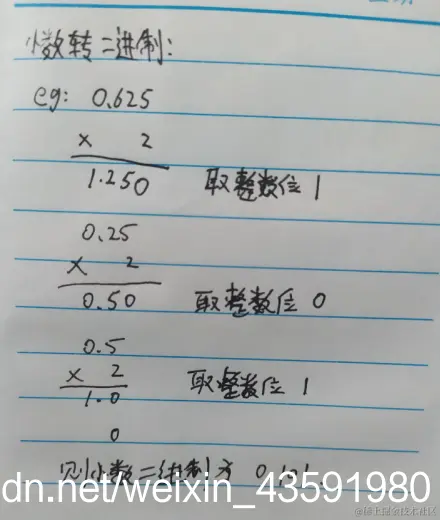 小数转二进制:
eg: 0.625
× 2
1.250 取整数位 1
0.25
× 2
0.50 取整数位 0
0.5
× 2 取整数位 1
1.0
0
则小数二进制为 0.101
dn.net/weixin_43591980
@稀土掘金技术社区